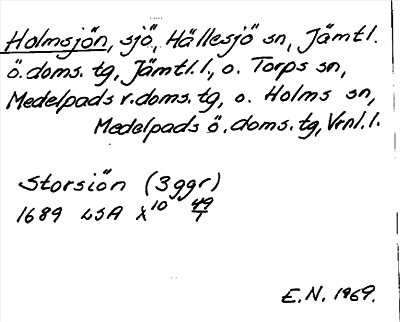 Holmsjön, sjö, Hällesjö sn, Jämtl.
ö. doms. tg, Jämtl. l., o. Torps sn,
Medelpads v. doms. tg, o. Holms sn,
Medelpads ö. doms. tg, Vrnl. l.
Storsiön (3ggr)
1689 LSA X10 49/1
E.N. 1969.